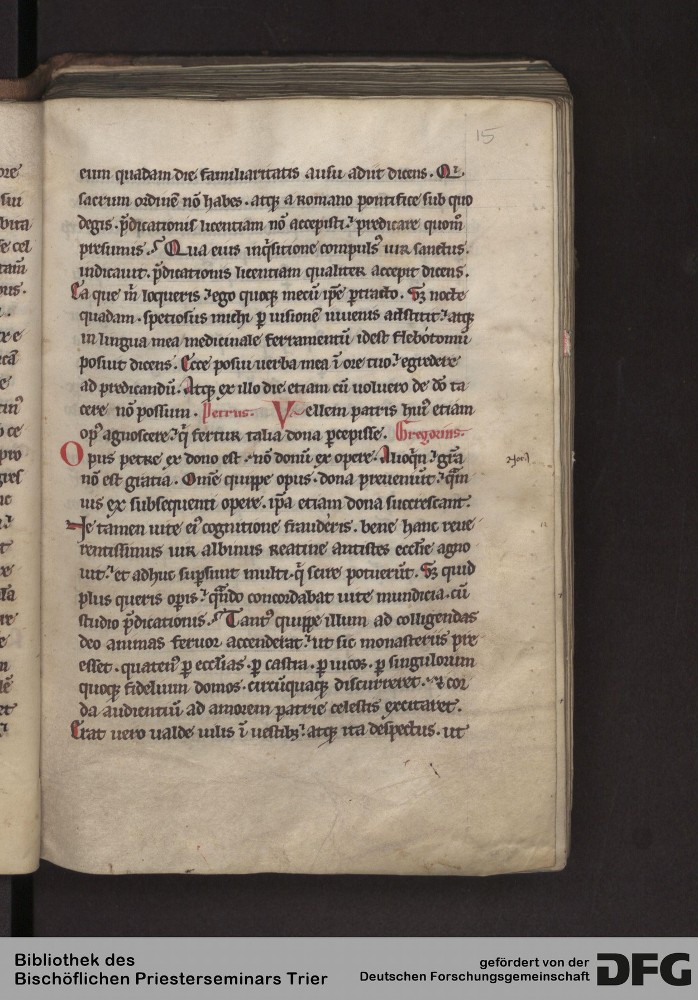 15
eum quadam die familiaritatis ausu adiit dicens. Qi
sacrum ordinē nō habes. atq; a romano pontifice sub quo
degis. p̄dicationis licentiam nō accepisti. predicare quom̄
presumis. Qua eius inq̇sitione compulsꝰ uir sanctus.
indicauit. p̄dicationis licentiam qualiter accepit dicens.
Ea que m̄ loqueris ⁊ ego quoq; mecū ip̄e ꝑtracto. Sꝫ nocte
quadam. speciosus michi ꝑ uisionē iuuenis adstitit. atq;
in lingua mea medicinale ferramentū idest flebotomū
posuit dicens. Ecce posui uerba mea ī ore tuo. egredere
ad predicandū. Atq; ex illo die etiam cū uoluero de dō ta
cere nō possum. Petrus. Vellem patris huiꝰ etiam
opꝰ agnoscere. q̇ fertur talia dona ꝑcepisse. Gregorius.
Opus petre ex dono est. nō donū ex opere. Alioq̇n gr̄a
nō est gratia. Omē quippe opus. dona preueniūt. q̄m
uis ex subsequenti opere. ip̄a etiam dona succrescant.
Ne tamen uite eiꝰ cognitione frauderis. bene hanc reue
rentissimus uir albinus reatine antistes eccl̄ie agno
uit. et adhuc suꝑsunt multi. q̇ scire potuerūt. Sꝫ quid
plus queris oꝑis. qn̄do concordabat uite mundicia. cū
studio p̄dicationis. Tantꝰ quippe illum ad colligendas
deo animas feruor accenderat. ut sic monasteriis pre
esset. quatenꝰ ꝑ ecclesias. ꝑ castra. ꝑ uicos. ꝑ singulorum
quoq; fidelium domos. circūquaq; discurreret. & cor
da audientiū ad amorem patrie celestis excitaret.
Erat uero ualde uilis ī uestibꝫ. atq; ita despectus. ut
Bibliothek des
Bischöflichen Priesterseminars Trier
gefördert von der
Deutschen Forschungsgemeinschaft
DFG